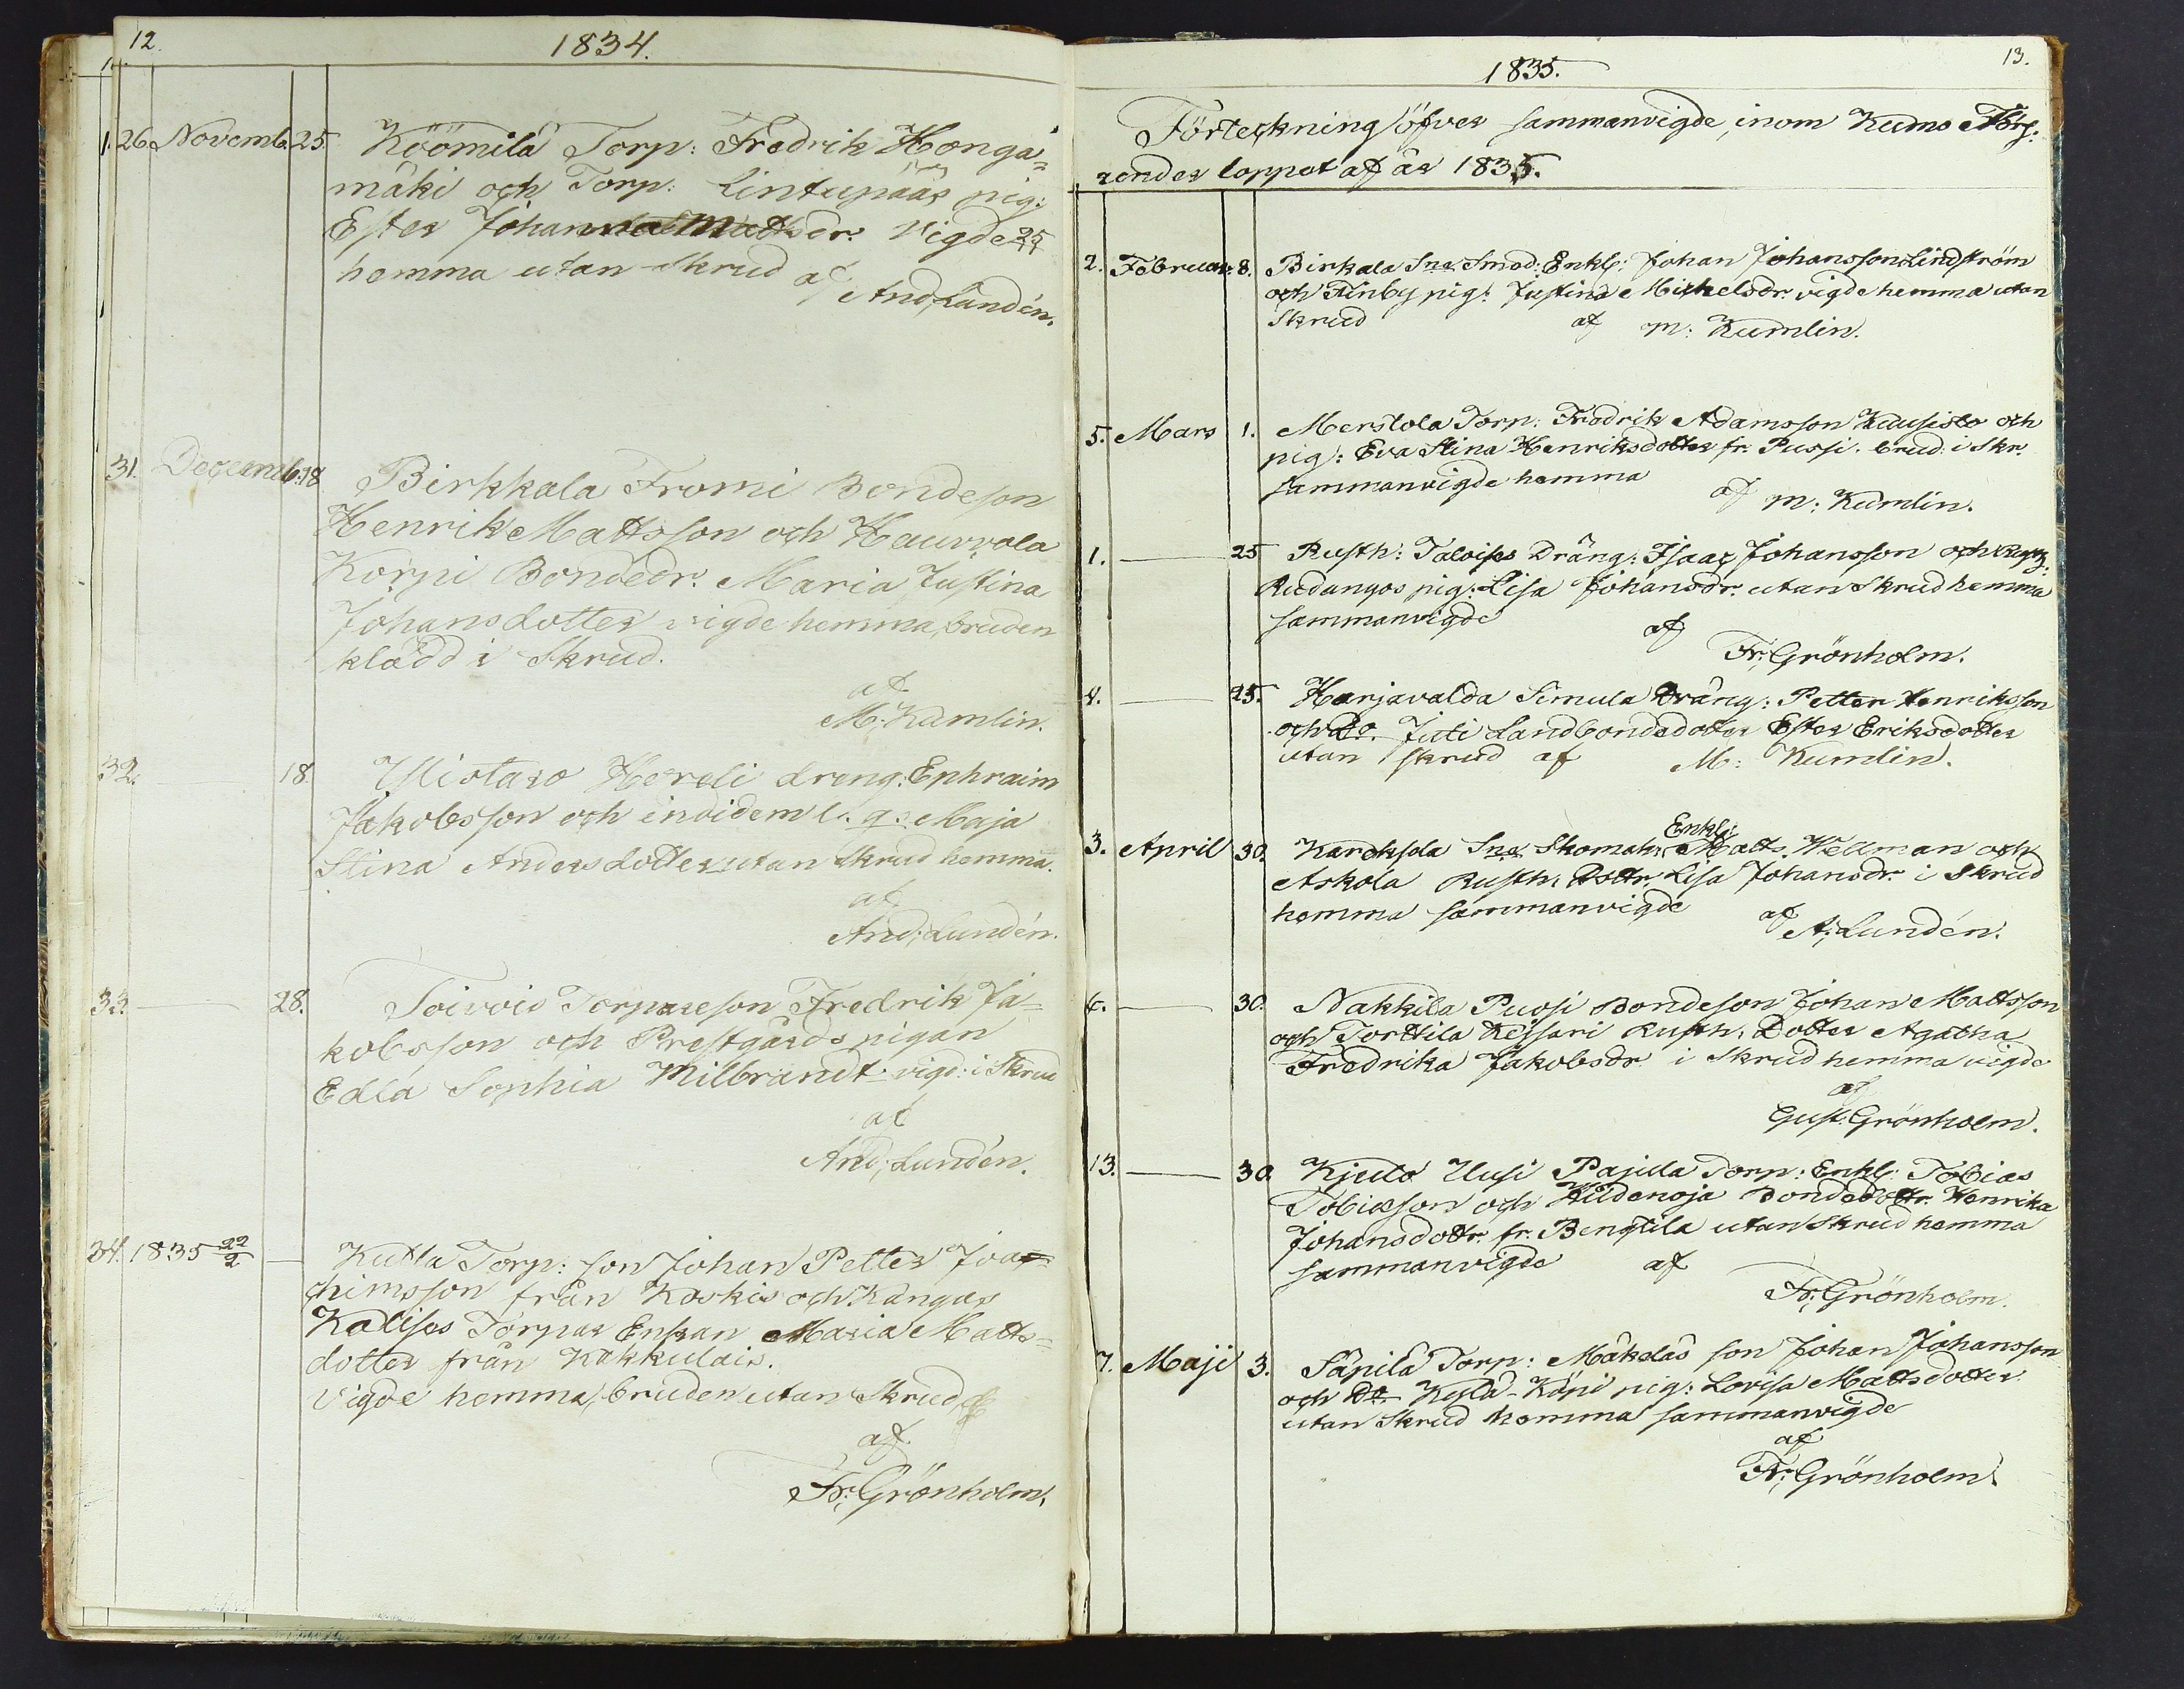 12.
1834.
26. Novemb. 25 Köömilä Torp: Fredrik Honga=
mäki och Torp. Lintupääs pig:
Ester Johanna Mattsdr. Vigde 25/11
hemma utan skrud af
And: Lundén.
31. Decemb: 18 Birkkala Fromi Bondeson
Henrik Mattsson och Haurrola
Korpi Bondedr. Maria Justina
Johansdotter vigde hemma, bruden
klädd i Skrud.
af
M: Kumlin.
32. — 18 Ylistaro Hereli dreng: Ephraim
Jakobsson och inbidem l. q. Maja
Stina Andersdotter utan Skrud hemma.
af
And: Lundén.
33. — 28. Toivois Torpareson Fredrik Ja=
kobsson och Prestgårds pigan
Edla Sophia Milbrandt vigd: i Skrud
af
And: Lundén.
34. 1835 22/2 — Kutla Torp: son Johan Petter Joa=
chimsson från Koskis och Kangas
Kalises Torpar Enkan Maria Matts=
dotter från Kakkulais.
Vigde hemma, bruden utan Skrud
af
Fr: Grönholm.
13.
1835.
Förteckning öfver sammanvigde, inom Kumo Förs.
under loppet af år 1835.
2. Februar: 8. Birkala Sns Smed: Enkl: Johan Johansson Lindström
och Tinby pig: Justina Michelsdr. vigde hemma utan
Skrud af M: Kumlin.
5. Mars 1. Merstola Torp: Fredrik Adamsson Kuusisto och
pig: Eva Stina Henriksdotter fr. Pussi. brud: i Skr.
sammanvigde hemma af M: Kumlin.
1. — 25 Rusth: Taloises Dräng: Isaac Johansson och
Rudangos pig: Lisa Johansdr. utan Skrud hemma
sammanvigde af
Fr: Grönholm.
4. — 25. Harjavalda Simula Dräng: Petter Henriksson
och Do. Juti Landbondedotter Ester Eriksdotter
utan skrud af M: Kumlin.
Enkl:
3. April 30. Kareksela Sns Skomak: Matts Wellman och
Askola Rusth. Dottr. Lisa Johansdr. i Skrud
hemma sammanvigde af A: Lundén.
6. — 30. Nakkila Puosi Bondeson Johan Mattsson
och Torttila Keisari Rusth. Dotter Agatha
Fredrika Jakobsdr. i Skrud hemma vigde
af
Gust: Grönholm.
13. — 30. Kjulo Uusi Pajula Torp: Enkl: Tobias
Tobiesson och Hiidenoja Bondedottr. Henrika
Johansdottr. fr. Bengtila utan Skrud hemma
sammanvigde af
Fr: Grönholm.
7. Maji 3. Säpilä Torp: Mäkeläs son Johan Johansson
och Do. Kylä-Käpi pig: Lovisa Mattsdotter
utan Skrud hemma sammanvigde
af
Fr: Grönholm.